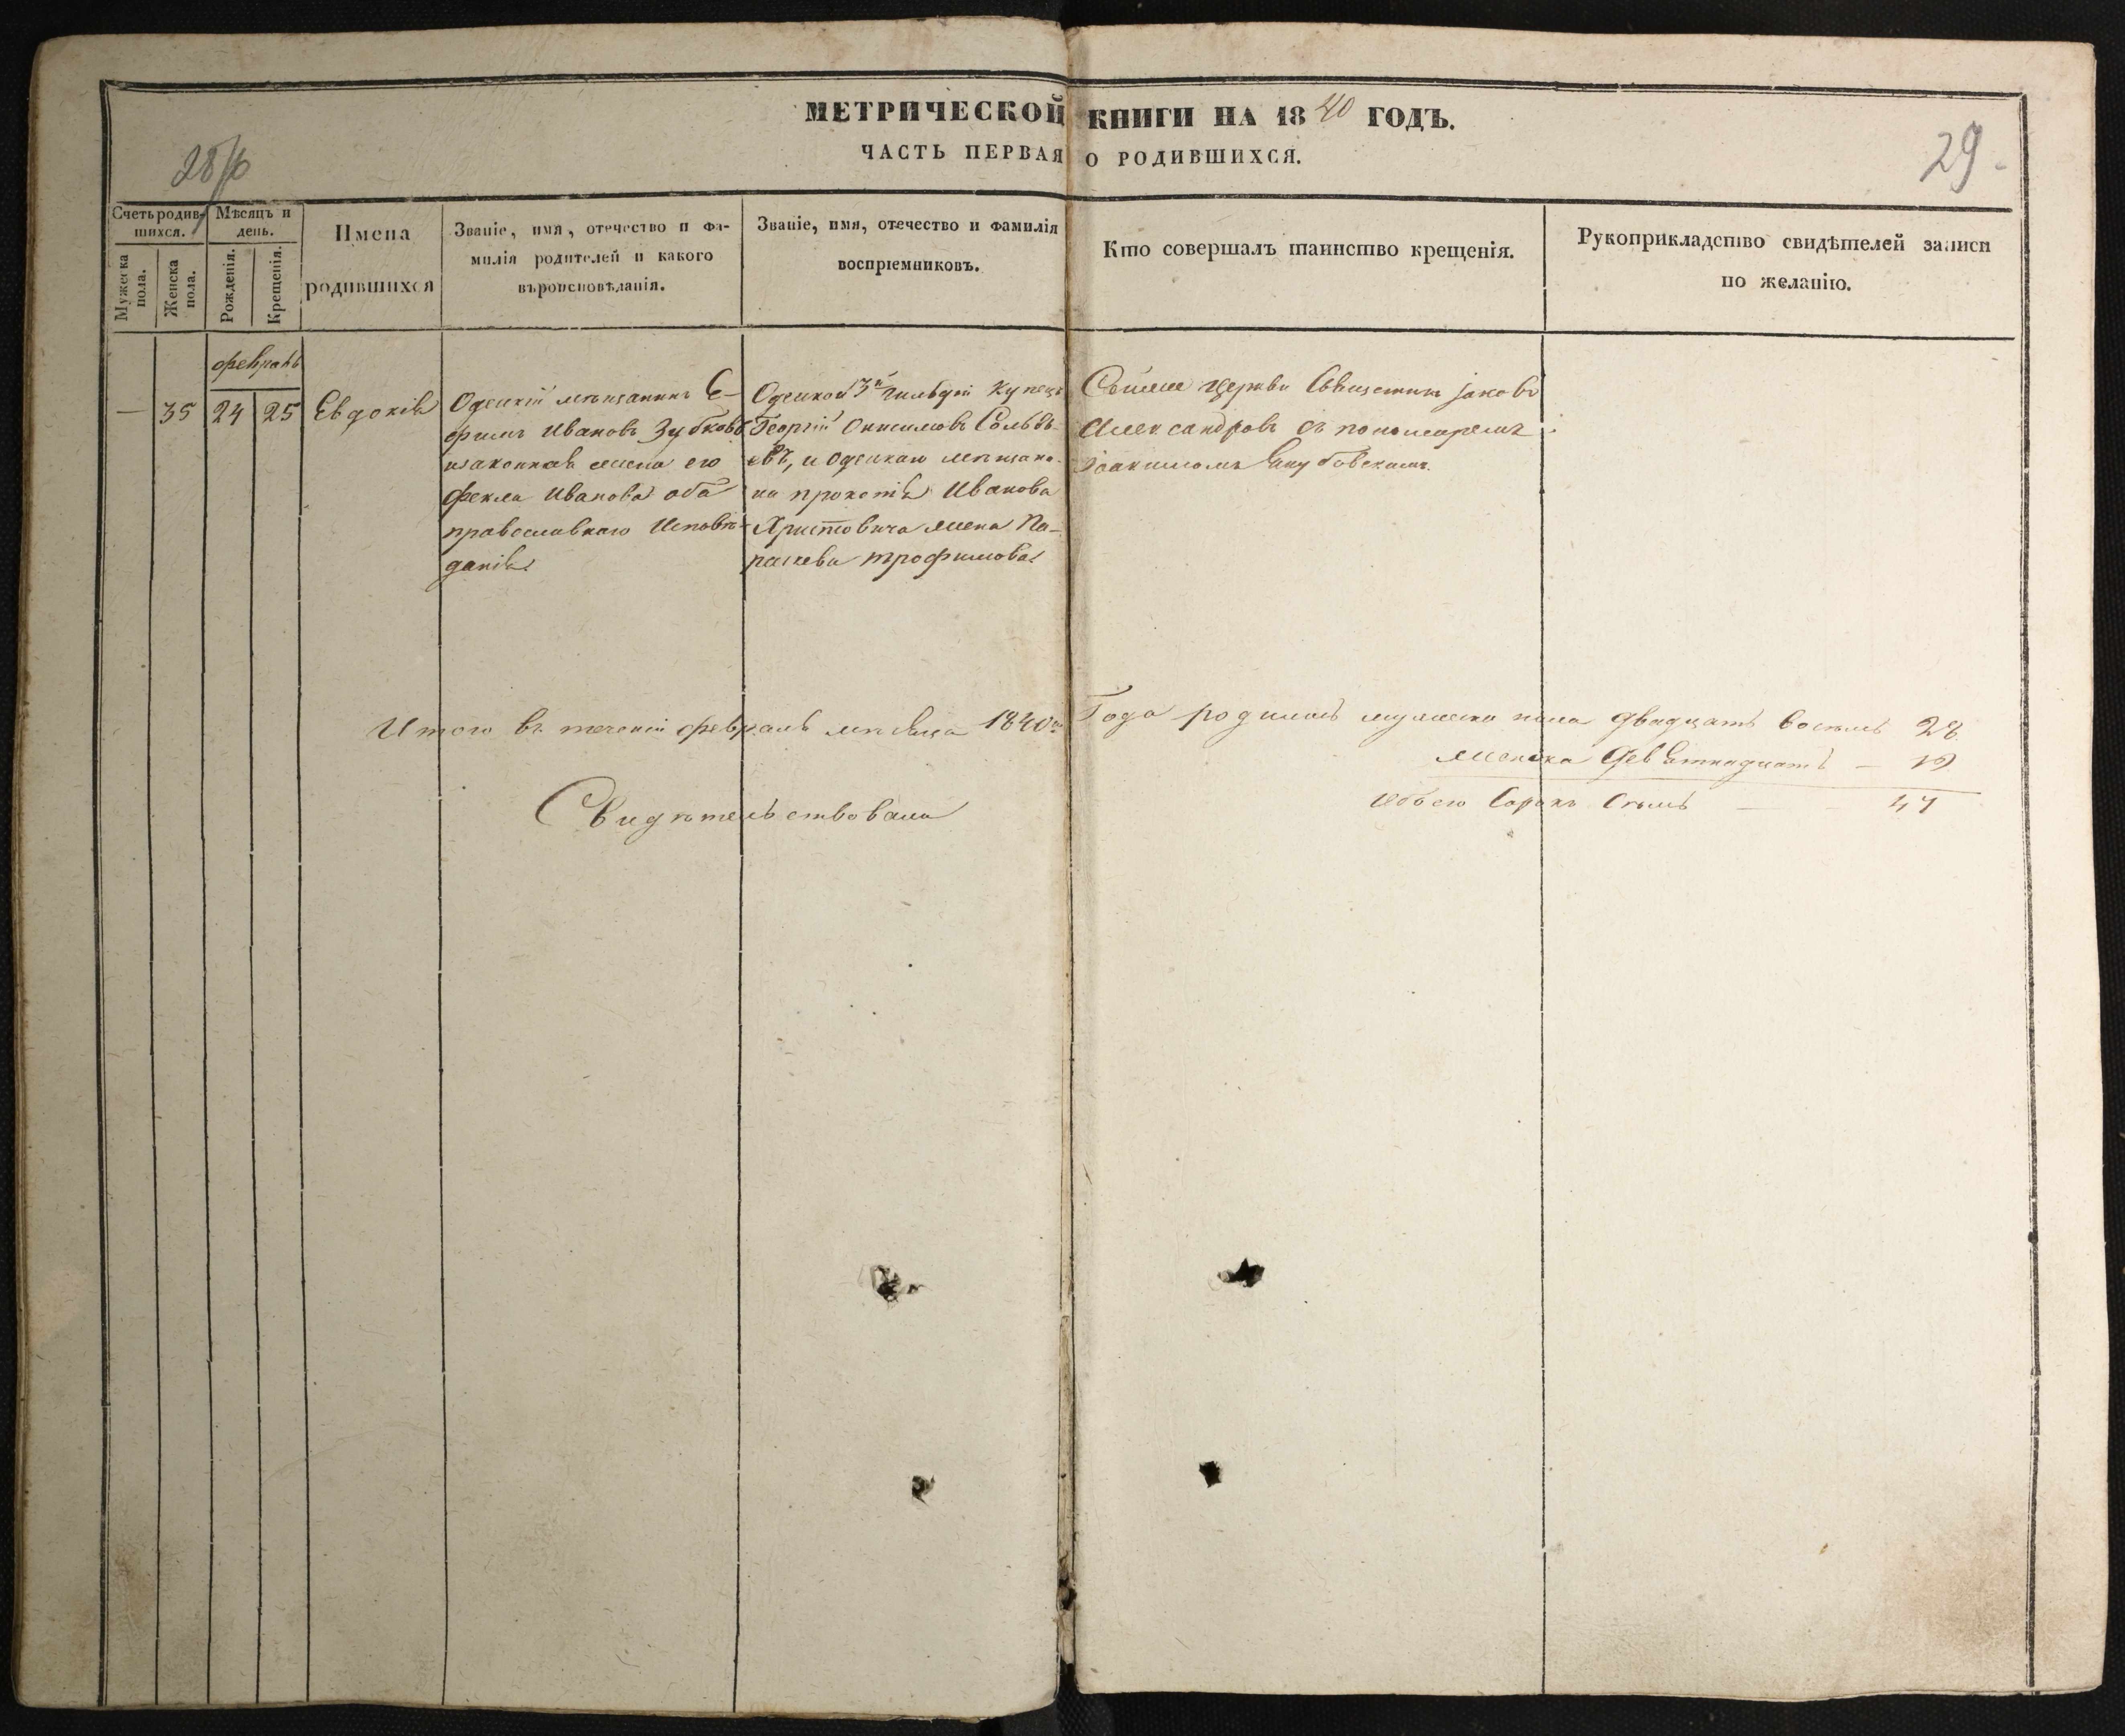 МЕТРИЧЕСКОЙ КНИГИ НА 1840 ГОДЪ.
ЧАСТЬ ПЕРВАЯ О РОДИВШИХСЯ.
28
29
Счетъ родив-
шихся.
Мужеска пола.
Женска пола.
Мѣсяцъ и
день.
Рожденія.
Крещенія.
Имена
родившихся
Званіе, имя, отечество и фа-
милія родителей и какого
вѣроисповѣданія.
Званіе, имя, отечество и фамилія
воспріемниковъ.
Кто совершалъ таинство крещенія.
Рукоприкладство свидѣтелей записи
по желанію.
февраль
— 35 24 25 Евдокія
Одескій мѣщанинъ Е-
фимъ Ивановъ Зубковъ
и законная жена его
Фекла Иванова оба
православнаго Исповѣ-
данія
Одеской 3й гильдіи Купецъ
Георгій Онисимовъ
евъ, и Одескаго мѣщани-
на Иванова
Христовича жена Па-
раскева трофимова
Сѣйже Церкви Священникъ Іаковъ
Александровъ съ пономаремъ
Іоакимомъ Якубовскимъ.
Итого въ теченіи февраль мѣсяца 1840го Года родилось мужеска пола двадцать восемь 28
женска Девятнадцать — 19
Обоего Сорокъ Семь — 47
Свидѣтельствовали